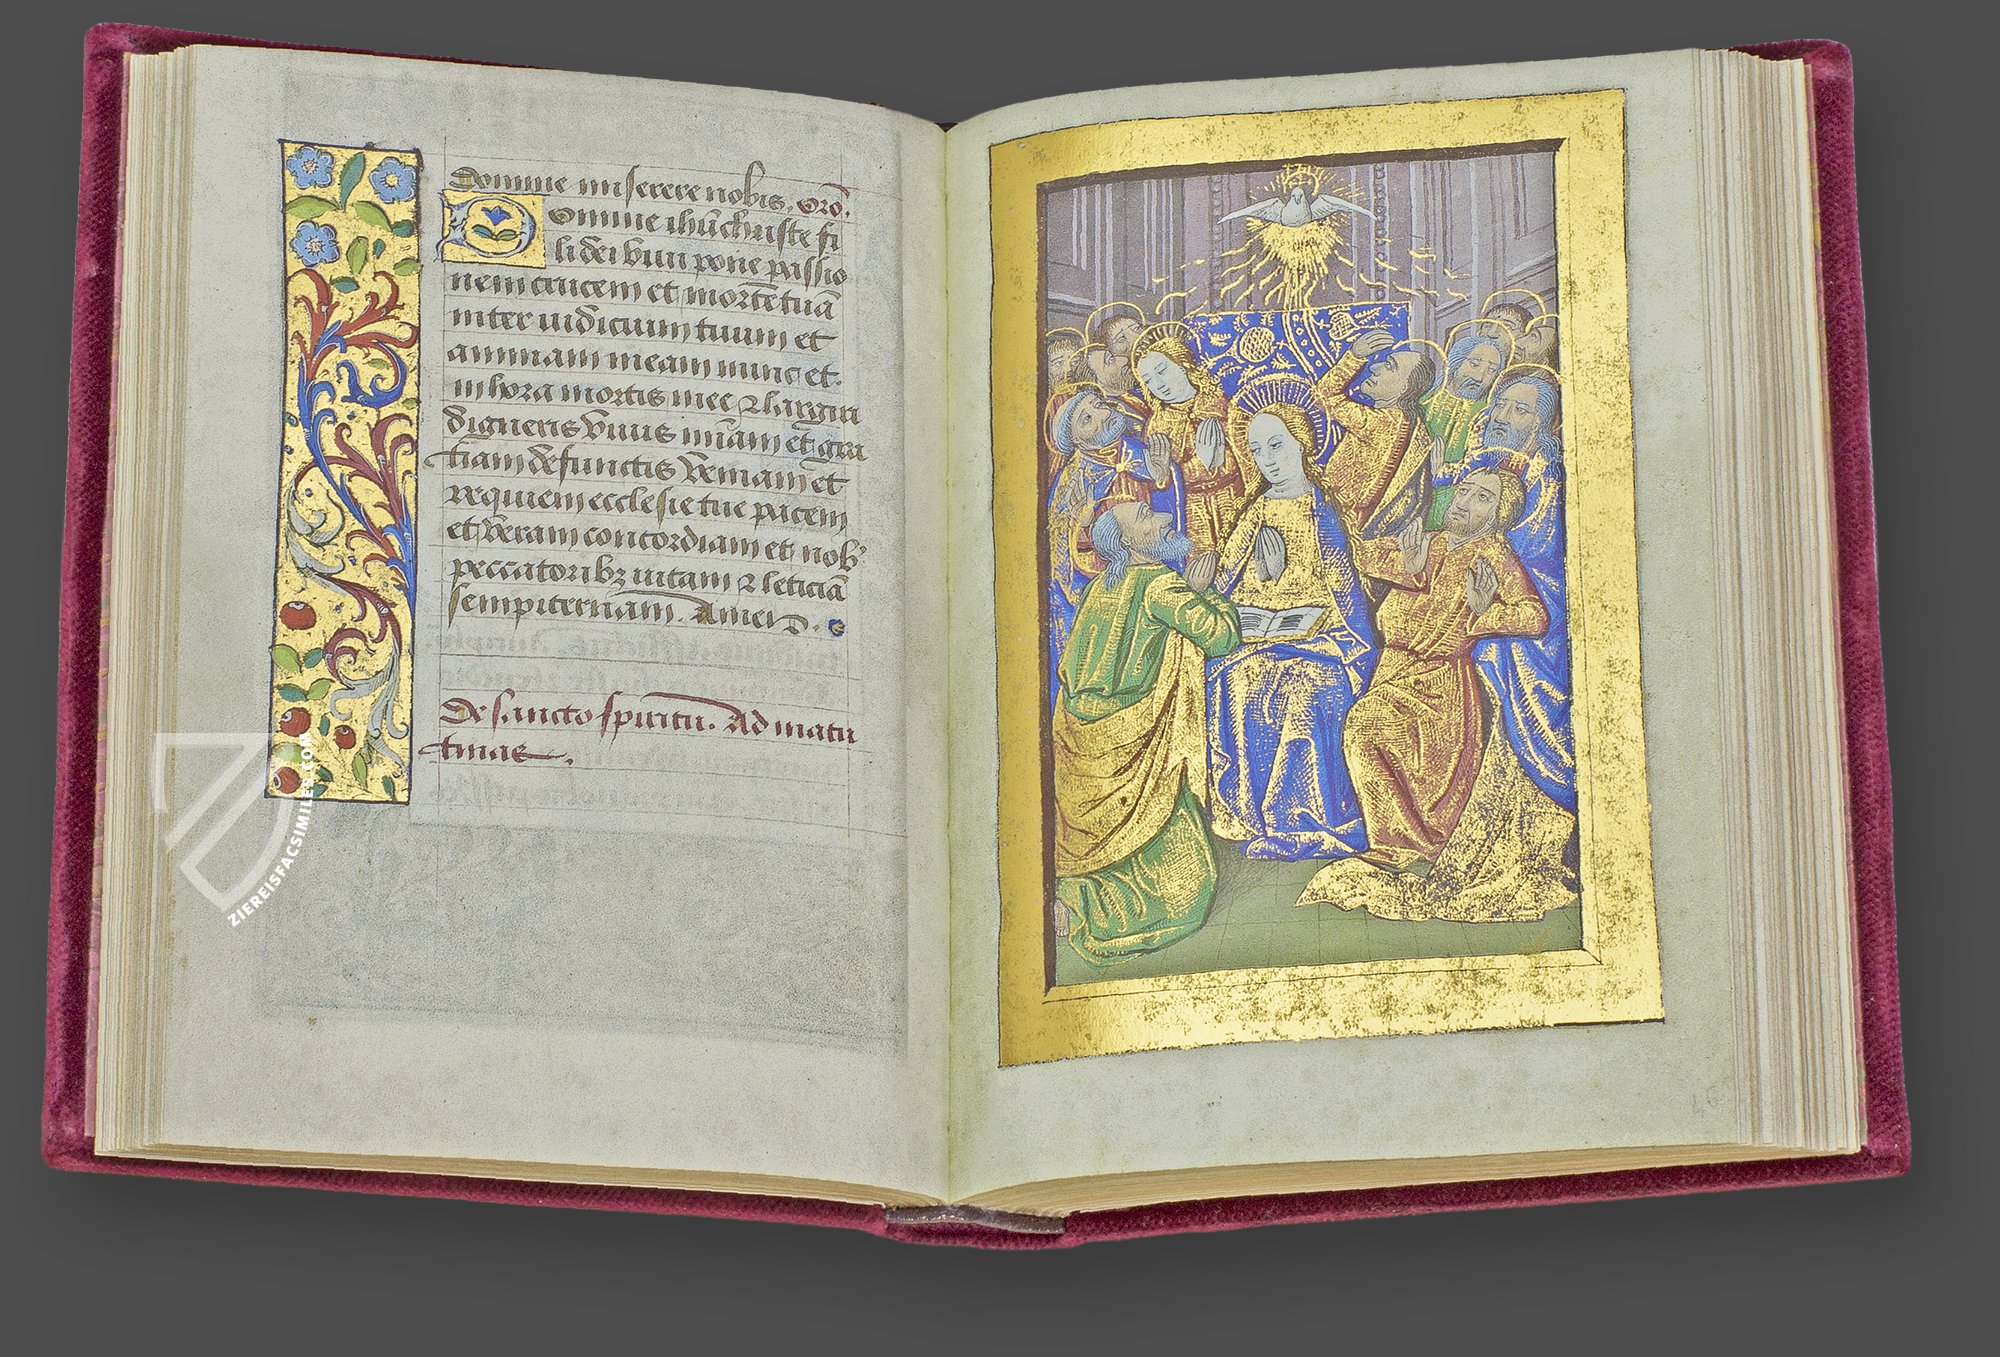 Domine miserere nobis. Orō.
Domine ihūchriste fi
li dei viui pone passio
nem crucem et mortē tuā
inter iudicium tuum et
animam meam nunc et
in hora mortis mee ⁊ largiri
digneris viuis mīam et gra
tiam defunctis veniam et
requiem ecclesie tue pacem
et veram concordiam et nob'
peccatoribꝫ uitam ⁊ leticiā
sempiternam. Amen.
De sancto spiritu. Ad matu
tinas.
ZIEREISFACSIMILES.COM